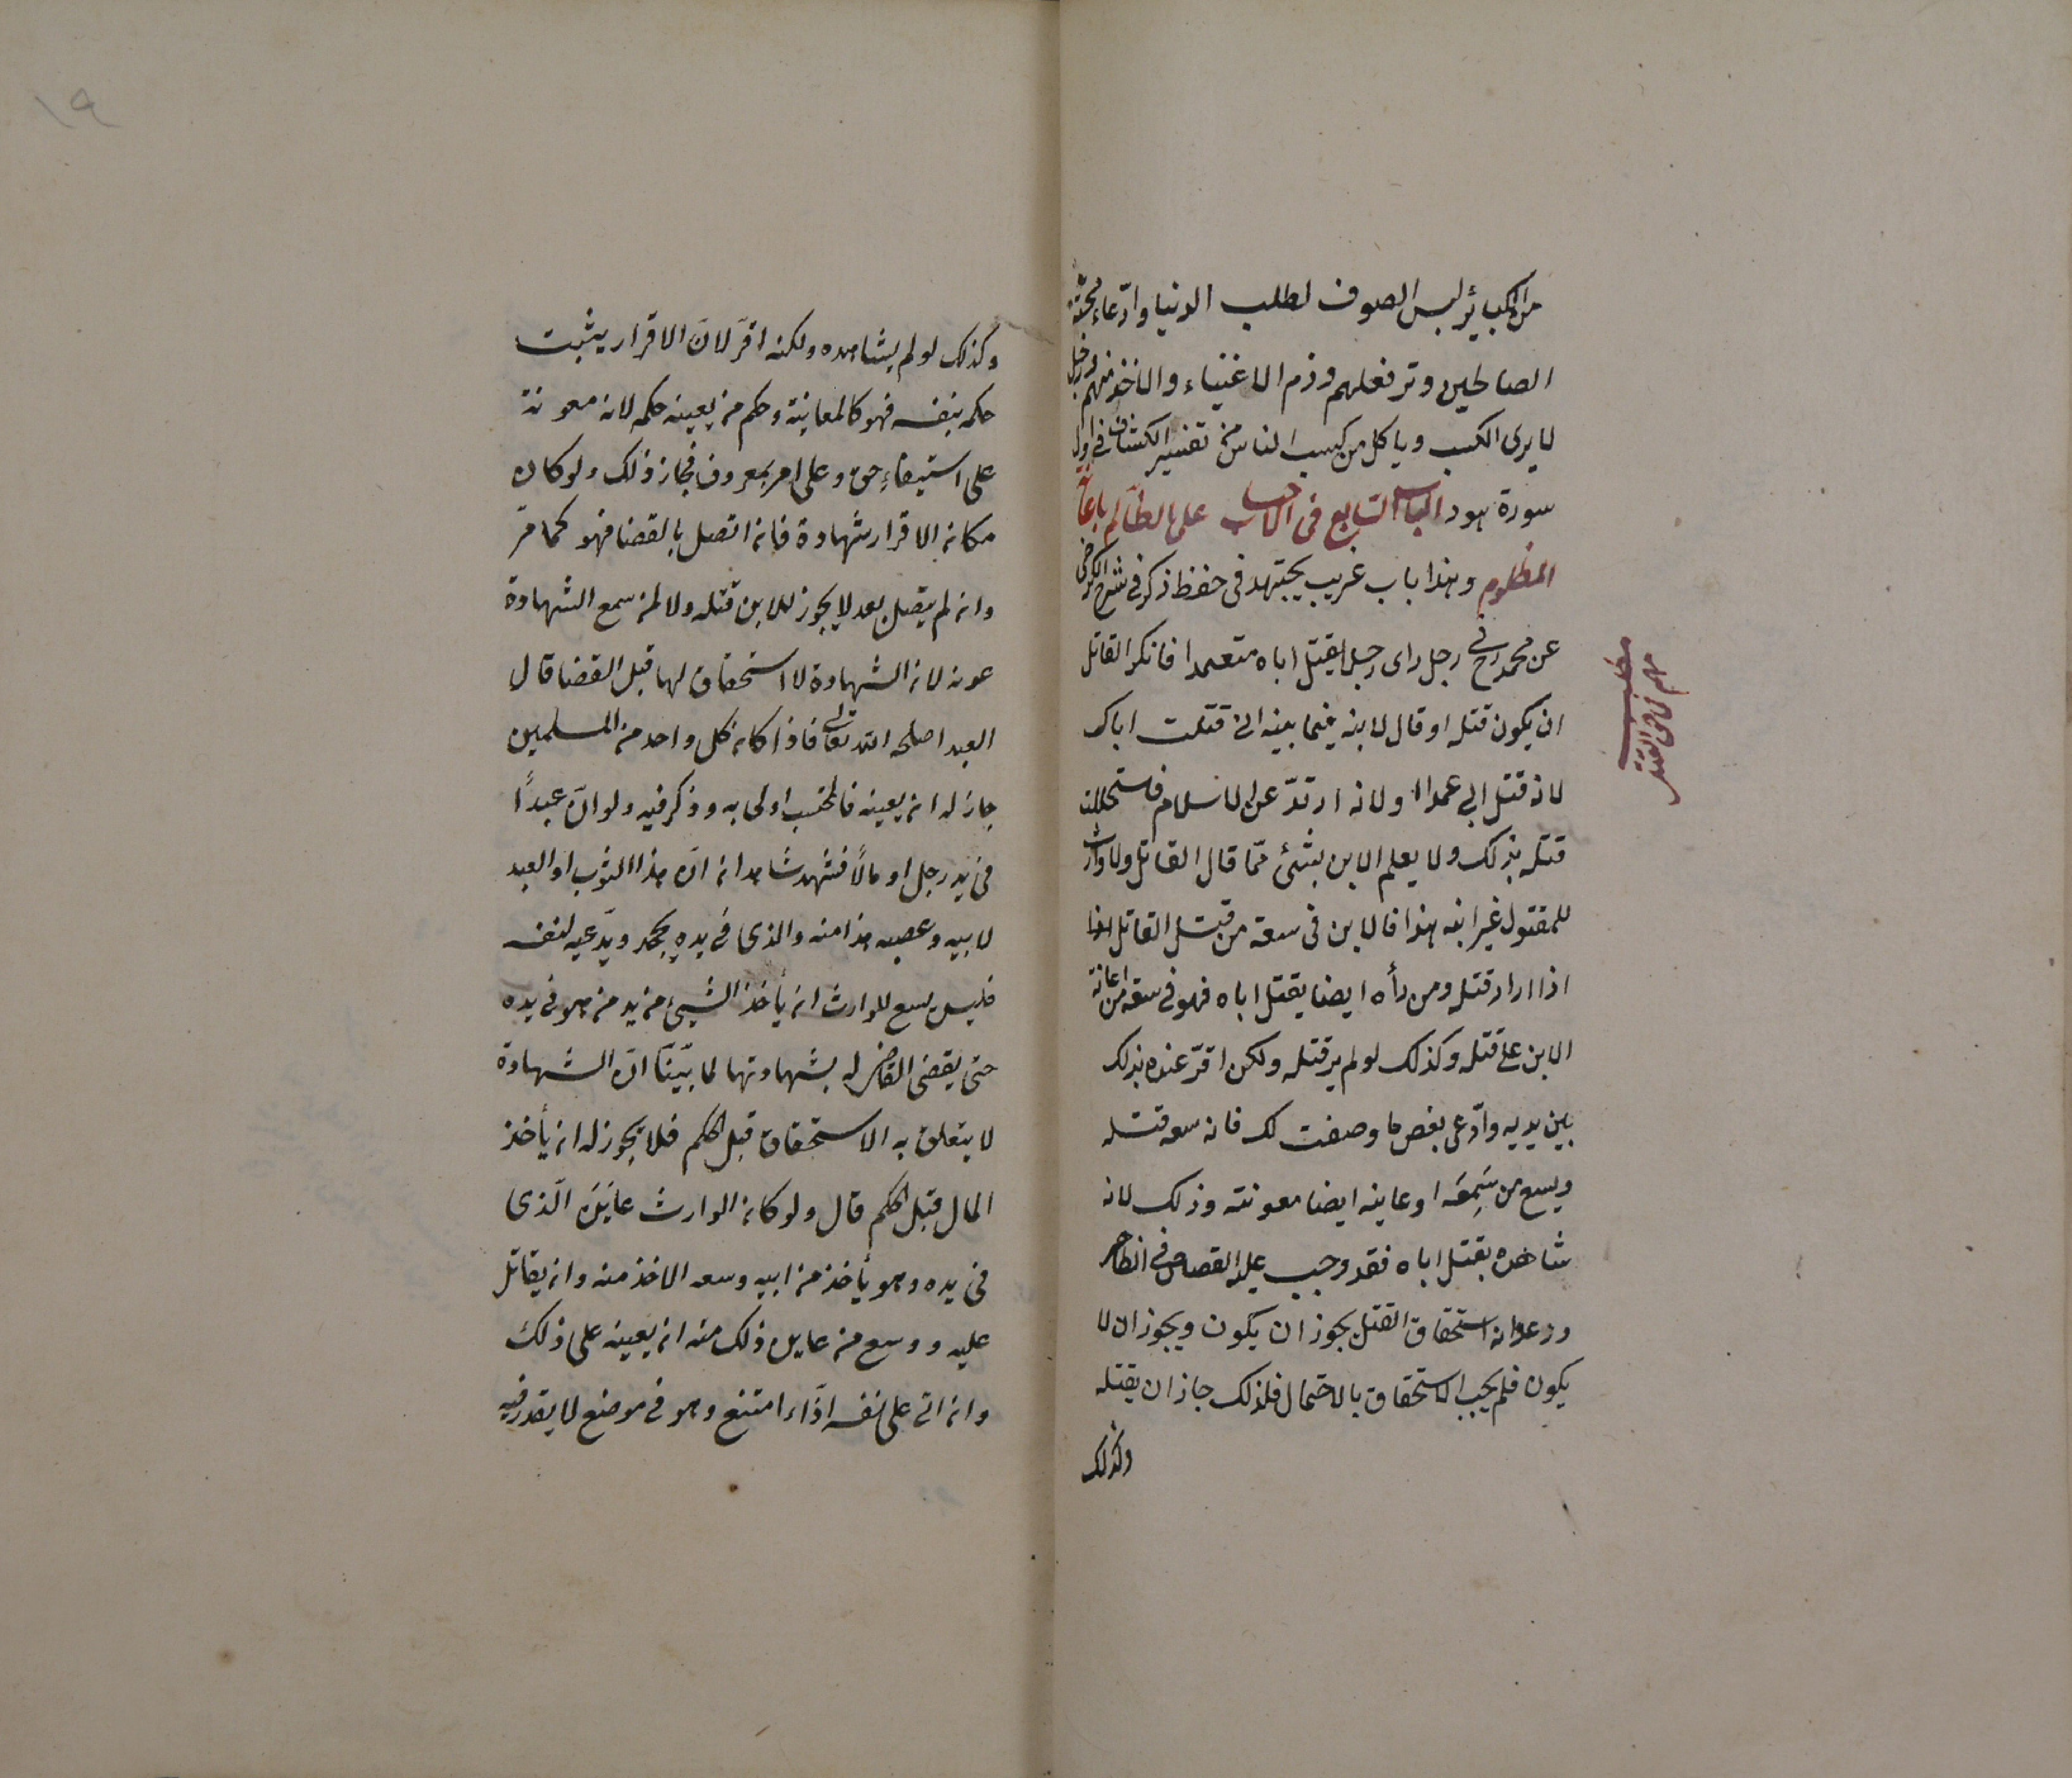 من الكبائر لبس الصوف لطلب الدنيا وادّعاء محبّة
الصالحين وترفعلهم وذم الاغنياء والاخذ منهم ورجل
لا يرى الكسب وياكل من كسب الناس من تفسير الكشاف في اول
سورة هود الباب السابع في الاحتساب على الظالم باعانة
المظلوم وهذا باب غريب يجتهد في حفظ ذكر في شرح الكرخي
عن محمد رح في رجل راى رجلا يقتل اباه متعمدا فانكر القاتل
ان يكون قتله او قال لابنه فيما بينه انى قتلت اباك
لانه قتل ابي عمدا او لانه ارتدّ عن الاسلام فاستحللت
قتله بذلك ولا يعلم الابن بشئ ممّا قال القاتل ولا وارث
للمقتول غير ابنه هذا فالابن في سعة من قتل القاتل
اذا اراد قتله ومن رأه ايضا يقتل اباه فهو في سعة من اعانة
الابن على قتله وكذلك لو لم ير قتله ولكن اقرّ عنده بذلك
بين يديه وادّعى بعض ما وصفت لك فانه سعه قتله
ويسع من سَمِعَه او عاينه ايضا معونته وذلك لانه
شاهده يقتل اباه فقد وجب عليه القصاص في الظاهر
ودعواه استحقاق القتل يجوز ان يكون ويجوز ان لا
يكون فلم يجب الاستحقاق بالاحتمال فلذلك جاز ان يقتله
وكذلك
مطلب
١٩
وكذلك لو لم يشاهده ولكنه اقرّ لانّ الاقرار يثبت
حكمه بنفسه فهو كالمعاينة وحكم من يعينه حكمه لانه معونة
على استيفاء حق وعلى امر بمعروف فجاز ذلك ولو كان
مكان الاقرار شهادة فان اتصل بالقضا فهو كما مرّ
وان لم يتصل بعد لا يجوز للابن قتله ولا لمن سمع الشهادة
عونه لان الشهادة لا استحقاق لها قبل القضا قال
العبد اصلحه الله تعالى فاذا كان كل واحد من المسلمين
جاز له ان يعينه فالمحتسب اولى به وذكر فيه ولو انّ عبدًا
في يد رجل او مالًا فشهد شاهدان انّ هذا الثوب او العبد
لابيه وغصبه هذا منه والذى في يده يجحد ويدّعيه لنفسه
فليس يسع للوارث ان يأخذ الشيئ من يد من هو في يده
حتى يقضى القاضى له بشهادتهما لما بيّنّا انّ الشهادة
لا يتعلق به الاستحقاق قبل الحكم فلا يجوز له ان يأخذ
المال قبل الحكم قال ولو كان الوارث عايَنَ الّذى
في يده وهو يأخذ من ابيه وسعه الاخذ منه وان يقاتل
عليه ووسع من عاين ذلك منه ان يعينه على ذلك
وان اتى على نفسه اذاء امتنع وهو في موضع لا يقدر فيه